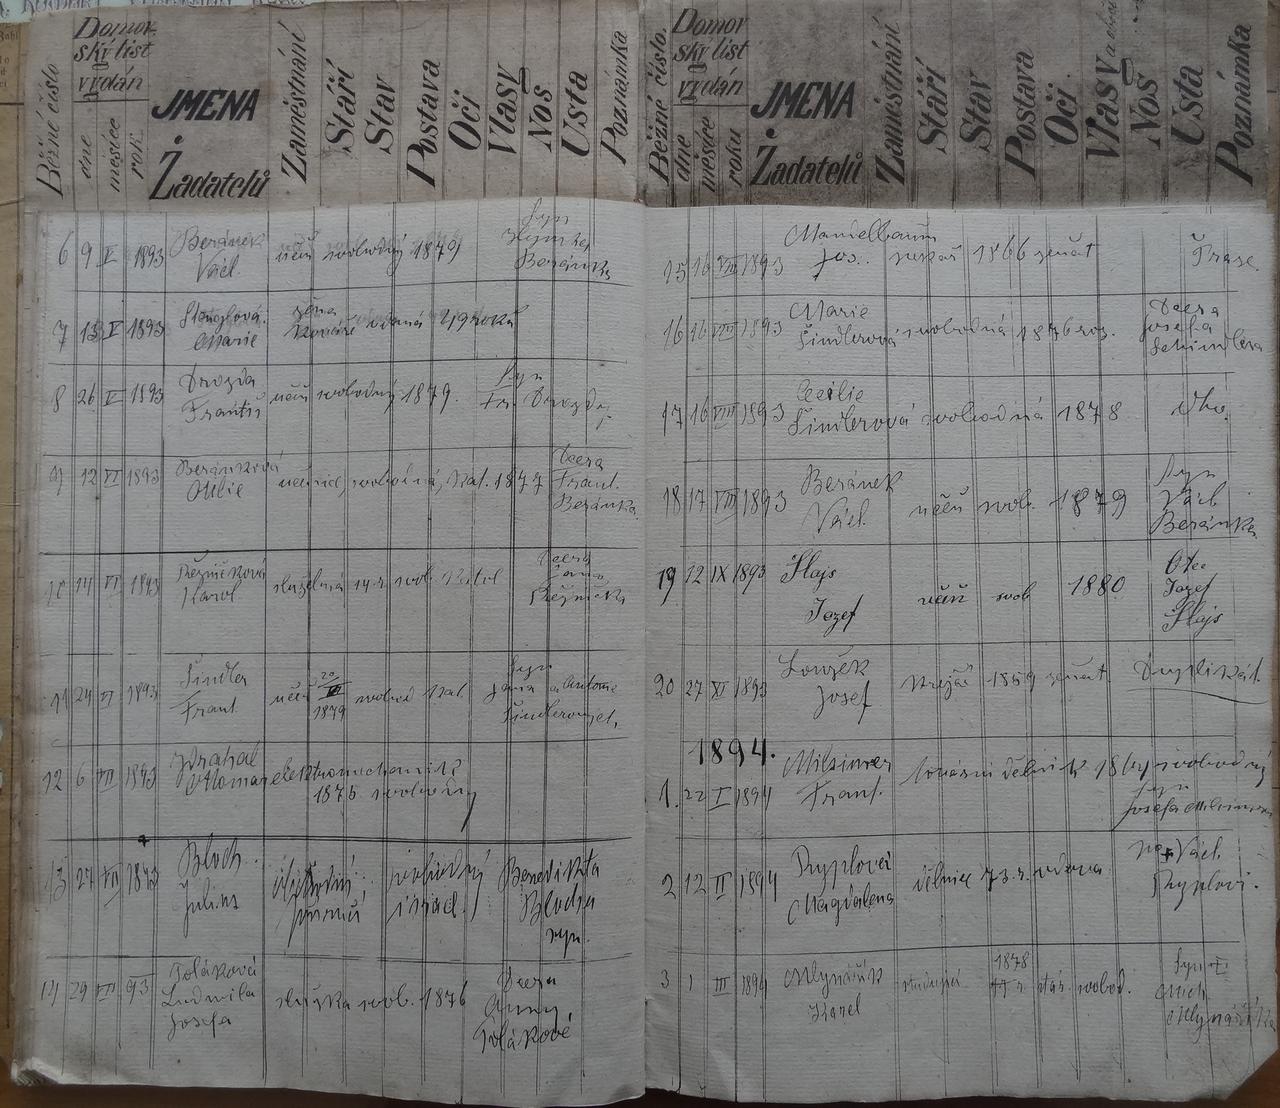 Běžné číslo
Domov
ský list
vydán
dne
měsíce
rok.
JMENA
Žadatelů
Zaměstnání
Stáří
Stav
Postava
Oči
Vlasy
Nos
Usta
Poznámka
6 9 V 1893 Beránek Václ. učeň svobodný 1879 Syn Hynka Beránka
7 13 V 1893 Marie žena vdaná 49 roků
8 26 V 1893 Drozda Františ učeň svobodný 1879. Syn Fr. Drozdy
9 12 VI 1893 Beránková Otilie svobodná, kat. 1877 Dcera Frant. Beránka
10 14 VI 1893 Řezníčková Karol 14 r. svob. Katol Dcera Jana Řezníčka
11 24 VI 1893 Šindler Frant. učeň 20/III 1879 svobod kat Syn Jana a Antonie Šindlerových
12 6 VII 1893 Otomar elektromechanik 1875 svobodný
13 27 VII 1893 Bloch Julius svobodný israel. Benedikta Blocha syn.
14 29 VII 93 Poláková Ludmila Josefa služka svob. 1876 Dcera Anny Polákové
Běžné číslo.
Domov
ský list
vydán
dne
měsíce
roku
JMENA
Žadatelů
Zaměstnání
Stáří
Stav
Postava
Oči
Vlasy
Nos
Usta
Poznámka
15 16 VIII 1893 Mandelbaum Jos. 1866 ženat
16 16 VIII 1893 Marie Šindlerová svobodná 1876 roz. Dcera Josefa Schindlera
17 16 VIII 1893 Cecilie Šindlerová svobodná 1878 dto.
18 17 VIII 1893 Beránek Václ. učeň svob. 1879 Syn Václ. Beránka
19 12 IX 1893 Šlajs Jozef učeň svob 1880 Otec Jozef Šlajs
20 27 XI 1893 Josef krejčí 1859 ženat Duplikát.
1894.
1. 22 I 1894 Frant. dělník svobodný Syn Josefa
2 12 II 1894 Ryplová Magdalena dělnice 73 r. vdova po † Václ. Ryplovi.
3 1 III 1894 Mlynářík Karel 1878 svobod. Syn † Mich Mlynaříka